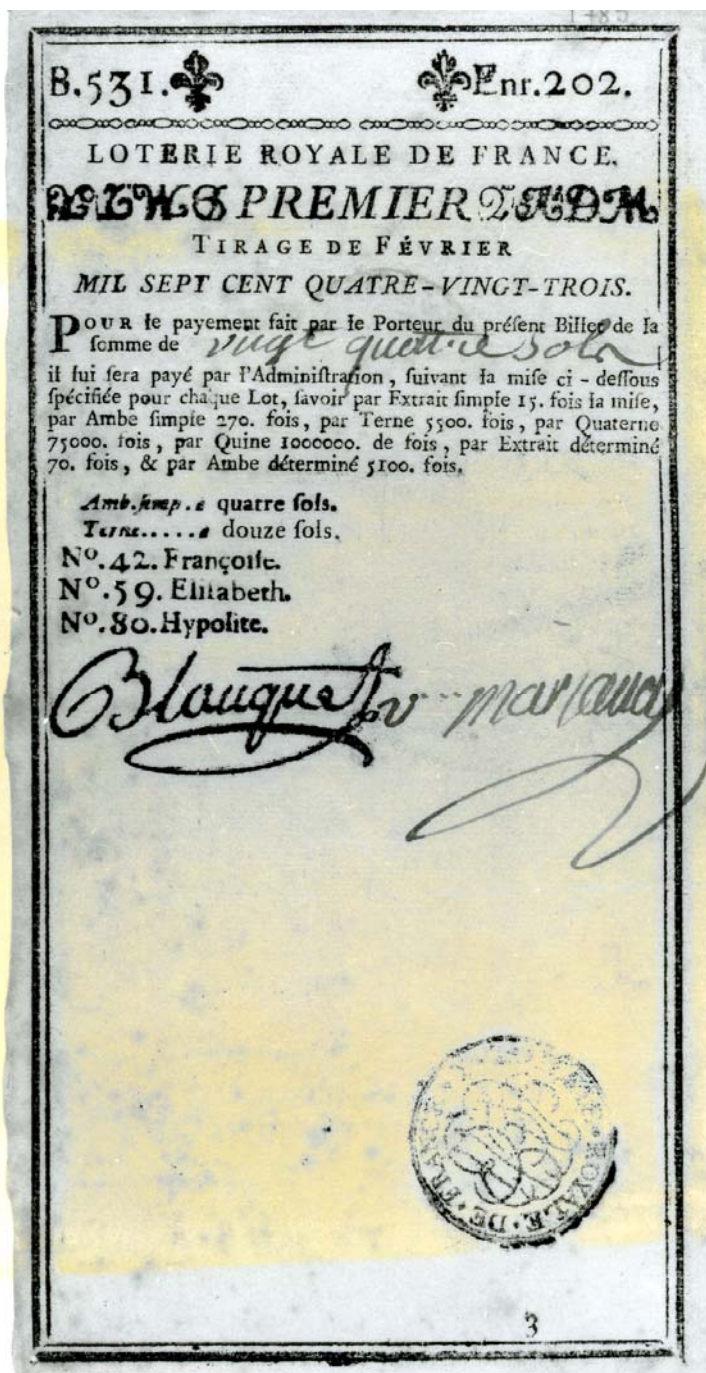 1783.
B.531. Enr.202.
LOTERIE ROYALE DE FRANCE.
PREMIER
TIRAGE DE FÉVRIER
MIL SEPT CENT QUATRE-VINGT-TROIS.
POUR le payement fait par le Porteur du préſent Billet de la
ſomme de vingt quattre Sols
il lui ſera payé par l'Adminiſtration, ſuivant la miſe ci-deſſous
ſpécifiée pour chaque Lot, ſavoir par Extrait ſimple 15. fois la miſe,
par Ambe ſimple 270. fois, par Terne 5500. fois, par Quaterne
75000. fois, par Quine 1000000. de fois, par Extrait déterminé
70. fois, & par Ambe déterminé 5100. fois.
quatre ſols.
Terne.....a douze ſols.
Nº.42. Françoiſe.
Nº.59. Eliſabeth.
Nº.80. Hypolite.
Blanquet
ROYALE·DE·FRANCE
3